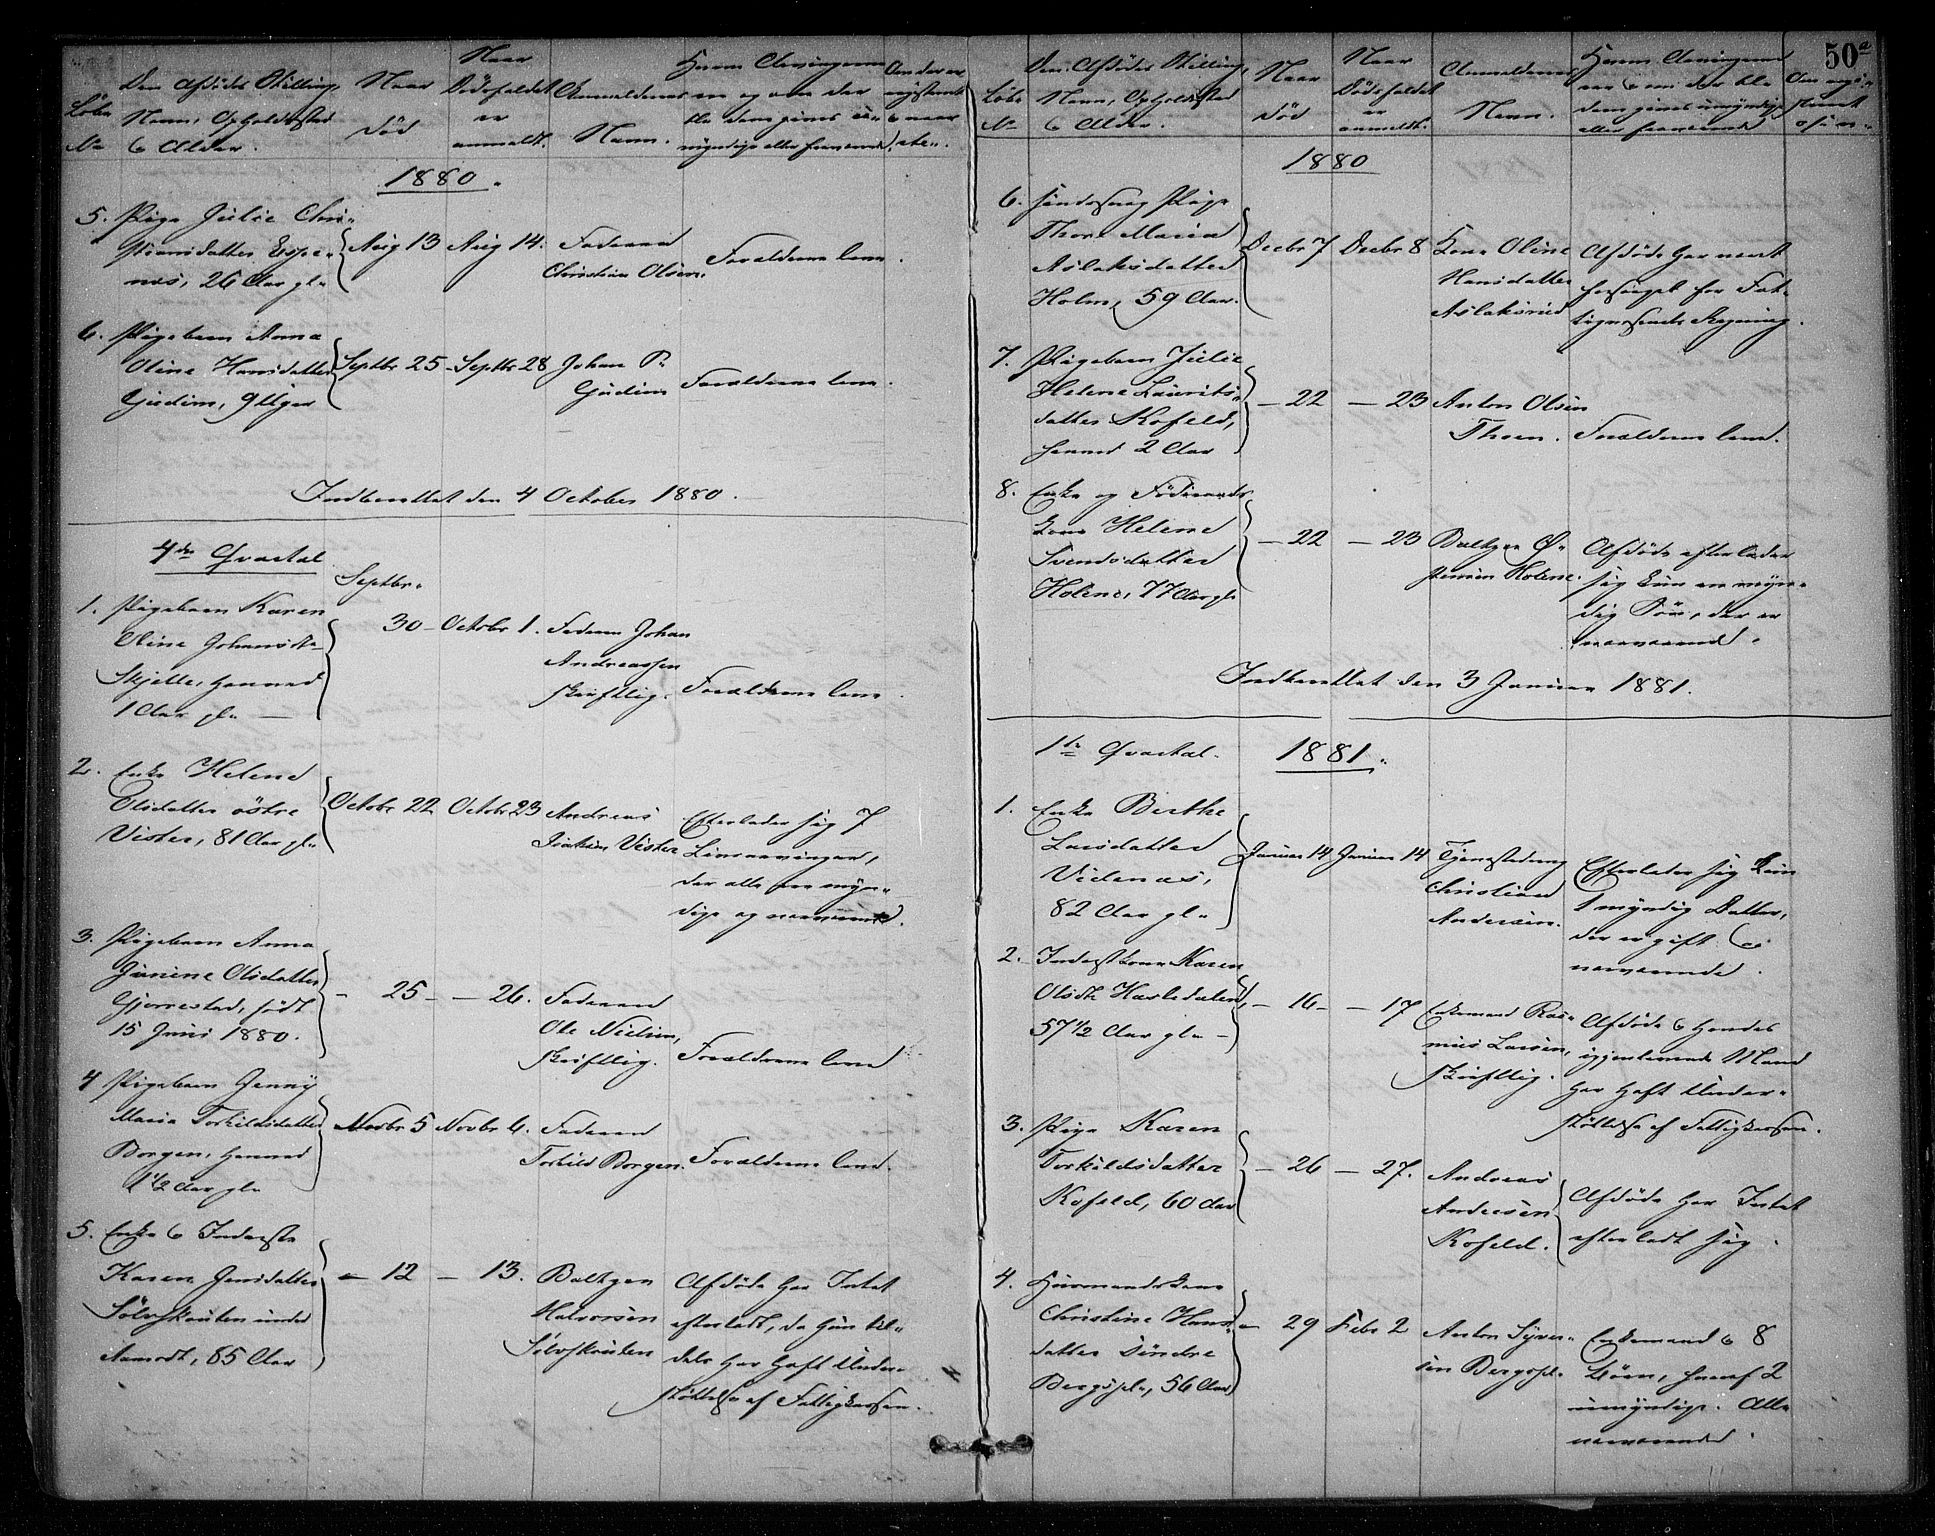 Løbe
No
Den Afdødes Stilling,
Navn, Opholdssted
& Alder.
Naar
død
Naar
Dødsfaldet
er
anmeldt.
Anmelderens
Navn.
1880.
5. Pige Julie Chri-
stiansdatter Espe-
næs, 26 Aar gl.
Aug 13
Aug 14.
Faderen
Christian Olsen.
Forældrene leve.
6. Pigebarn Anna
Oline Hansdatter
Gudim, 9 Uger
Septbr 25
Septbr 28
Johan P.
Gudim
Forældrene leve.
Indberettet den 4 October 1880.
4de Qvartal
1. Pigebarn Karen
Oline Johansdt.
Skjelle, henved
1 Aar gl.
Septbr.
30
Octobr 1.
Faderen Johan
Andreassen
skriftlig.
Forældrene leve.
2. Enke Helene
Olsdatter østre
Vister, 81 Aar gl.
Octobr 22
Octobr 23
Andreas
Vister
Efterlader sig 7
Livsarvinger,
der alle ere myn-
dige og nærværende.
3. Pigebarn Anna
Olsdatter
født
15 Juni 1880.
- 25
- 26.
Faderen
Ole Nielsen,
skriftlig.
Forældrene leve
4 Pigebarn Jenny
Maria Torkildsdatter
Borgen, henved
1½ Aar gl.
Novbr 5
Novbr 6.
Faderen
Torkild Borgen.
Forældrene leve.
5. Enke & Inderste
Karen Jensdatter
Sølvskouten under
Aamodt, 85 Aar
- 12
- 13.
Baltzer
Halvorsen
Sølvskouten
Afdøde har Intet
efterladt, da hun til-
dels har havt Under-
støttelse af Fattigkassen.
50a
Løbe
No
Den Afdødes Stilling,
Navn, Opholdssted
& Alder.
Naar
død
Naar
Dødsfaldet
er
anmeldt.
Anmelderens
Navn.
1880
6. Pige
Thore Maria
Aslaksdatter
Holm, 59 Aar.
Decbr 7
Decbr 8
Kone Oline
Hansdatter
Aslaksrud
Afdøde har været
forsørget for Fat-
tigvæsenets Regning.
7. Pigebarn Julie
Helene Laurits-
datter Kofeld,
henved 2 Aar
- 22
- 23
Anton Olsen
Thoen.
Forældrene leve.
8. Enke og Føderaads-
kone Helene
Svendsdatter
Holene, 77 Aar gl.
- 22
- 23
Baltzer
Holene.
Afdøde efterlader
sig kun en myn-
dig Søn, der er
nærværende.
Indberettet den 3 Januar 1881.
1te Qvartal.
1881.
1. Enke Berthe
Larsdatter
Videnæs,
82 Aar gl.
Januar 14
Januar 14
Tjenestedreng
Christian
Andersen.
Efterlader sig kun
1 myndig Datter,
der er gift &
nærværende.
2. Inderstkone Karen
Olsdt. Hasledalen,
57½ Aar gl.
- 16
- 17
Enkemand Ras-
mus Larsen,
skriftlig.
Afdøde & hendes
igjenlevende Mand
har havt Under-
støttelse af Fattigkassen.
3. Pige Karen
Torkildsdatter
Kofeld, 60 Aar
- 26
- 27.
Andreas
Andersen
Kofeld.
Afdøde har Intet
efterladt sig.
4. Huusmandskone
Christine Hans-
datter søndre
Bergspl., 56 Aar
- 29
Febr 2
Anton Syver-
sen Bergspl.
Enkemand & 8
Børn, hvoraf 2
umyndige. Alle
nærværende.